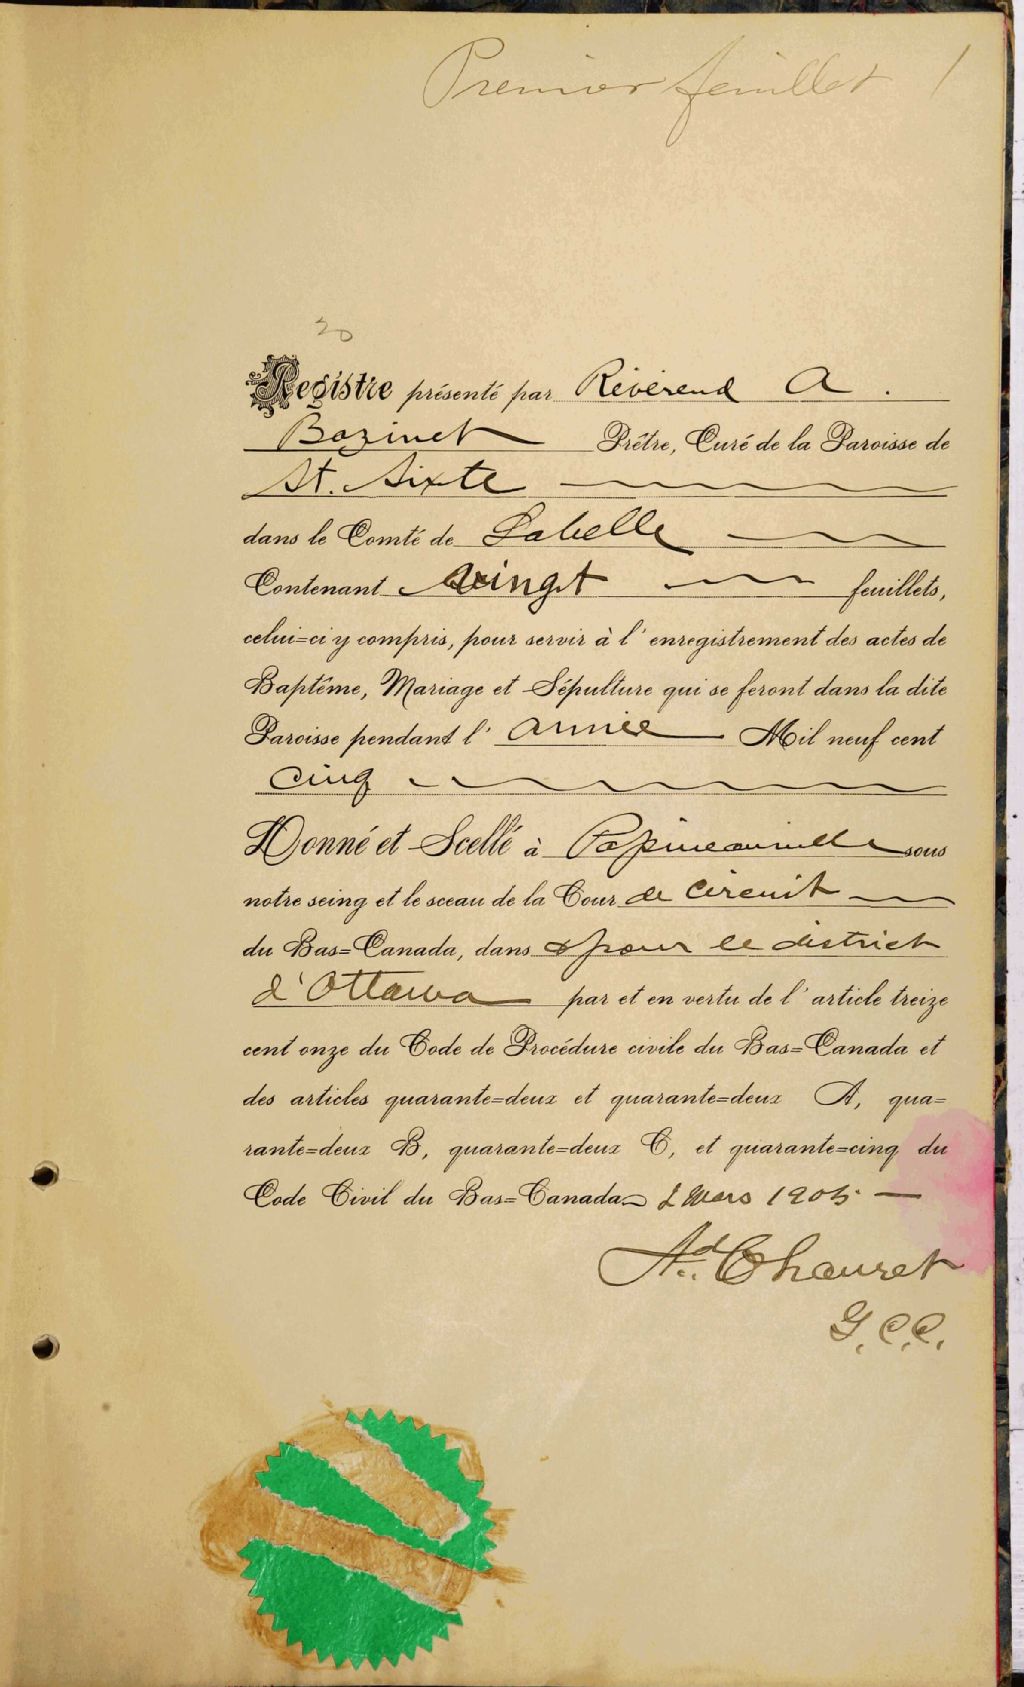 Premier feuillet 1
20
Registre présenté par Révérend A.
Bazinet Prêtre, Curé de la Paroisse de
St. Sixte
dans le Comté de Labelle
Contenant vingt feuillets,
celui=ci y compris, pour servir à l'enregistrement des actes de
Baptême, Mariage et Sépulture qui se feront dans la dite
Paroisse pendant l'année Mil neuf cent
cinq
Donné et Scellé à Papineauville sous
notre seing et le sceau de la Cour de circuit
du Bas=Canada, dans & pour le district
d'Ottawa par et en vertu de l'article treize
cent onze du Code de Procédure civile du Bas=Canada et
des articles quarante=deux et quarante=deux A, qua=
rante=deux B, quarante=deux C, et quarante=cinq du
Code Civil du Bas=Canada mars 1905
Ad. Chauret
G.C.C.